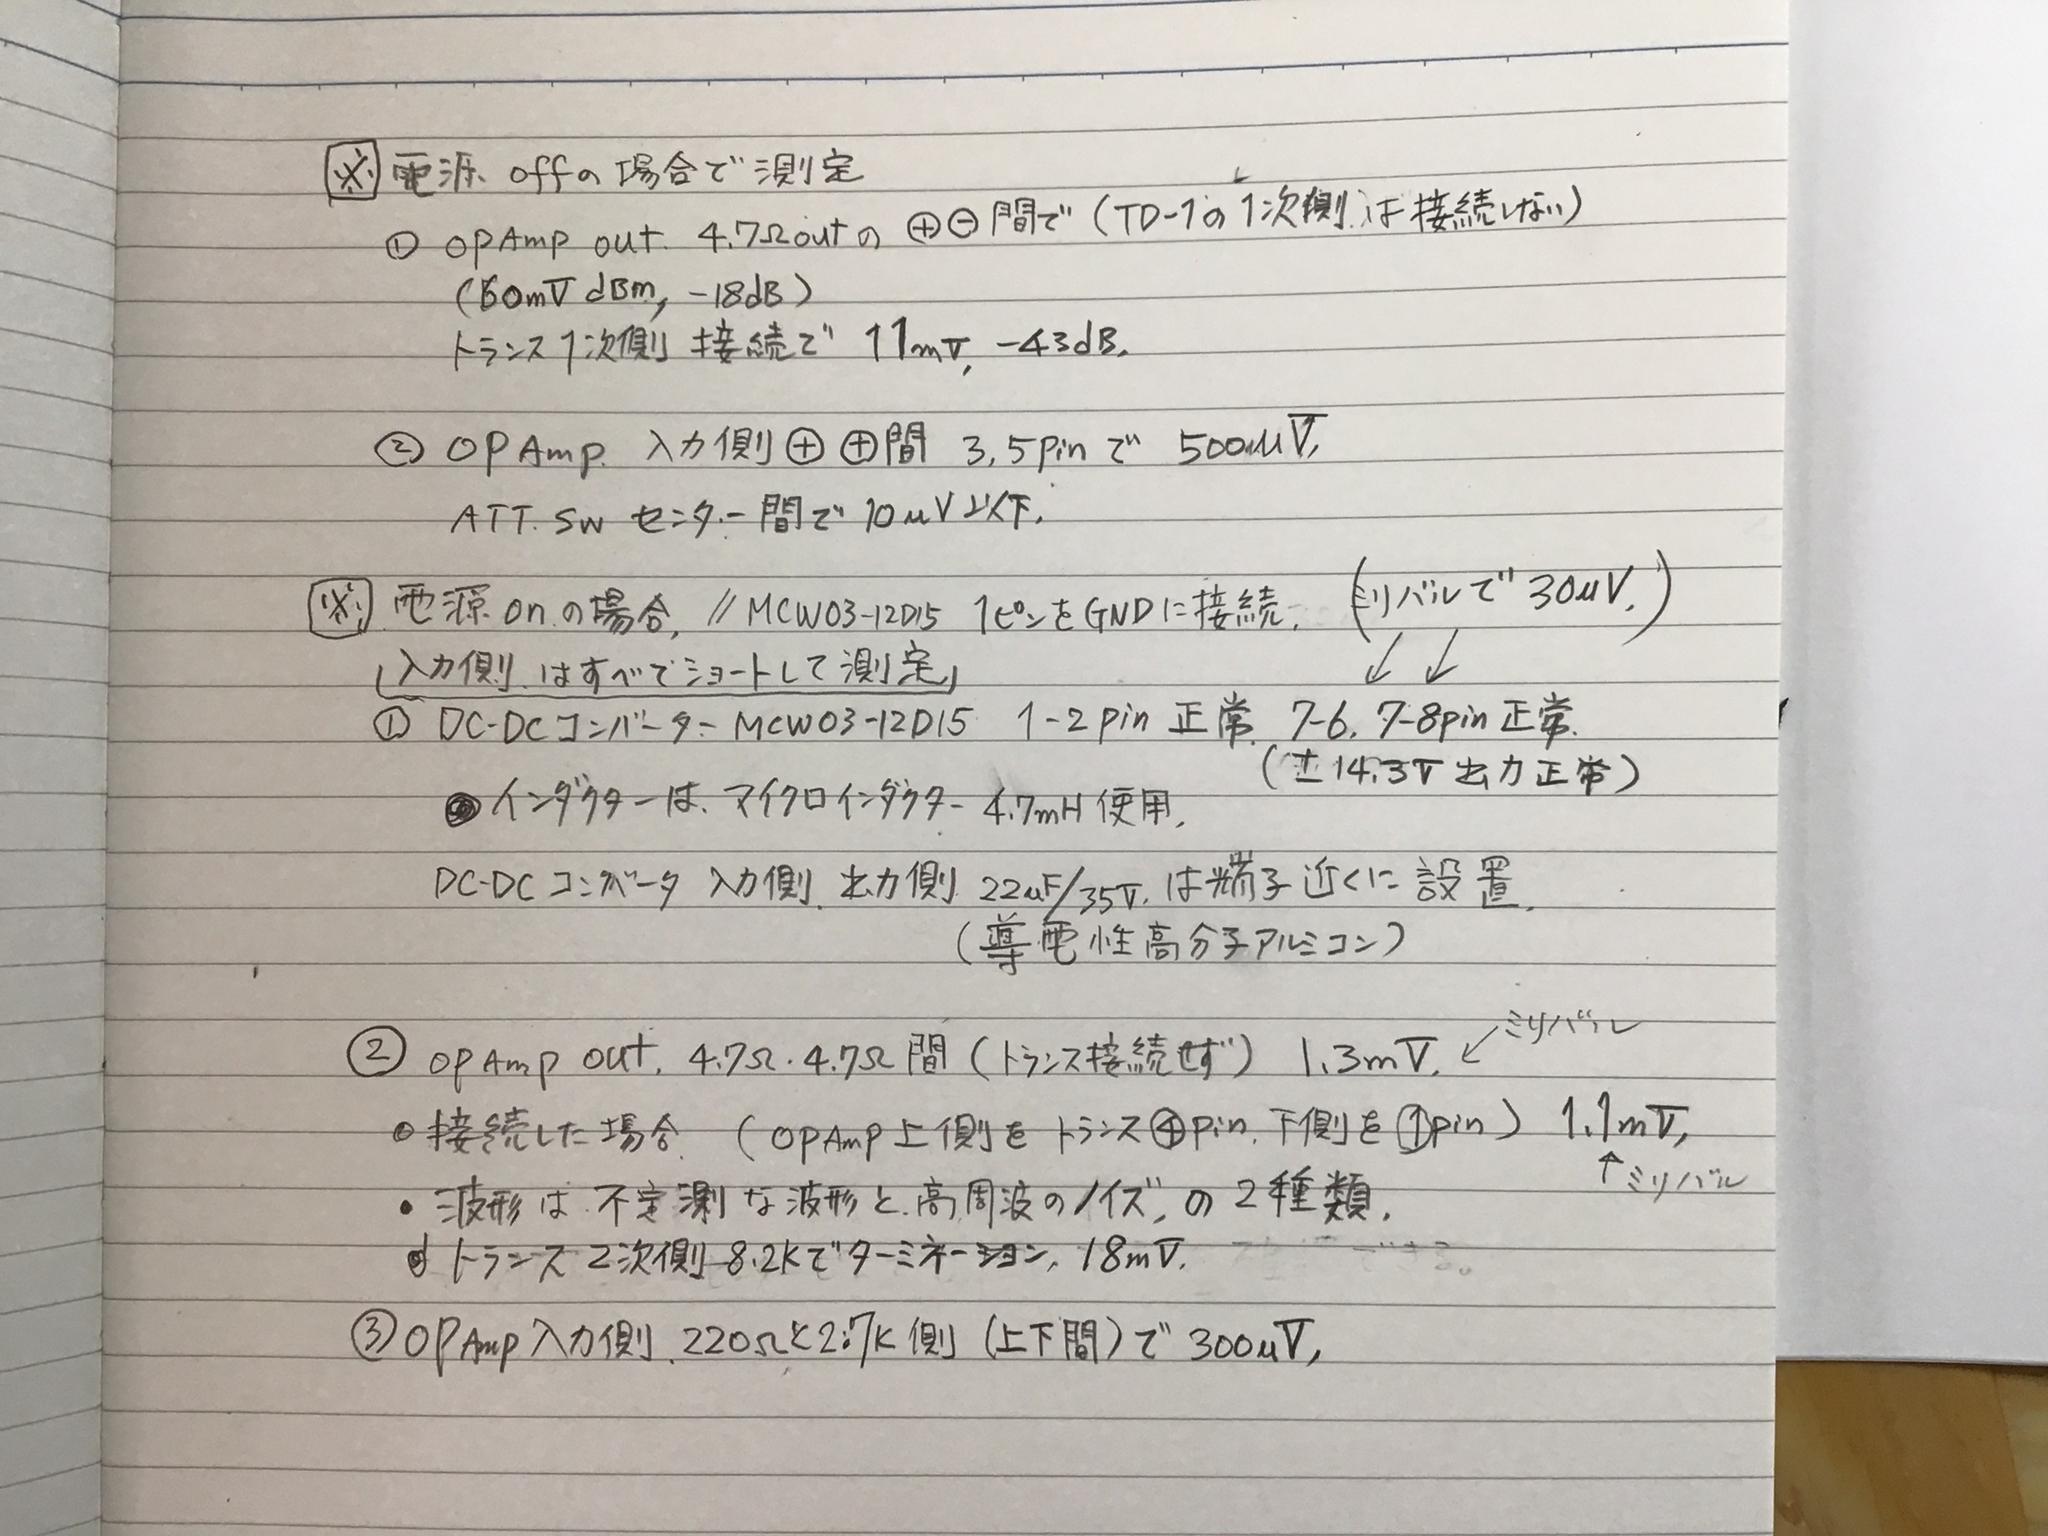 ※ 電源 offの場合で測定
① OPAmp out 4.7Ωoutの ⊕⊖間で (TD-1の1次側は接続しない)
(60mV dBm, -18dB)
トランス1次側 接続で 11mV, -43dB.
② OPAmp 入力側⊕ ⊕間 3,5pinで 500μV,
ATT. SW センター間で10μV以下.
※ 電源onの場合, // MCW03-12D15 1ピンをGNDに接続. (ミリバルで30μV.)
「入力側はすべてショートして測定」
① DC-DCコンバーター MCW03-12D15 1-2pin 正常. 7-6, 7-8pin正常.
(±14.3V出力正常)
● インダクターは、マイクロインダクター 4.7mH使用.
DC-DCコンバータ 入力側. 出力側 22μF/35V. は端子近くに設置.
(導電性高分子アルミコン)
② OPAmp out. 4.7Ω・4.7Ω間 (トランス接続せず) 1.3mV. ↙ミリバル
● 接続した場合. (OPAmp上側をトランス④pin. 下側を①pin) 1.1mV,
↑ミリバル
● 波形は不定測な波形と高周波のノイズ, の2種類.
● トランス2次側8.2Kでターミネーション, 18mV.
③ OPAmp入力側. 220Ωと2.7K側 (上下間)で300μV,